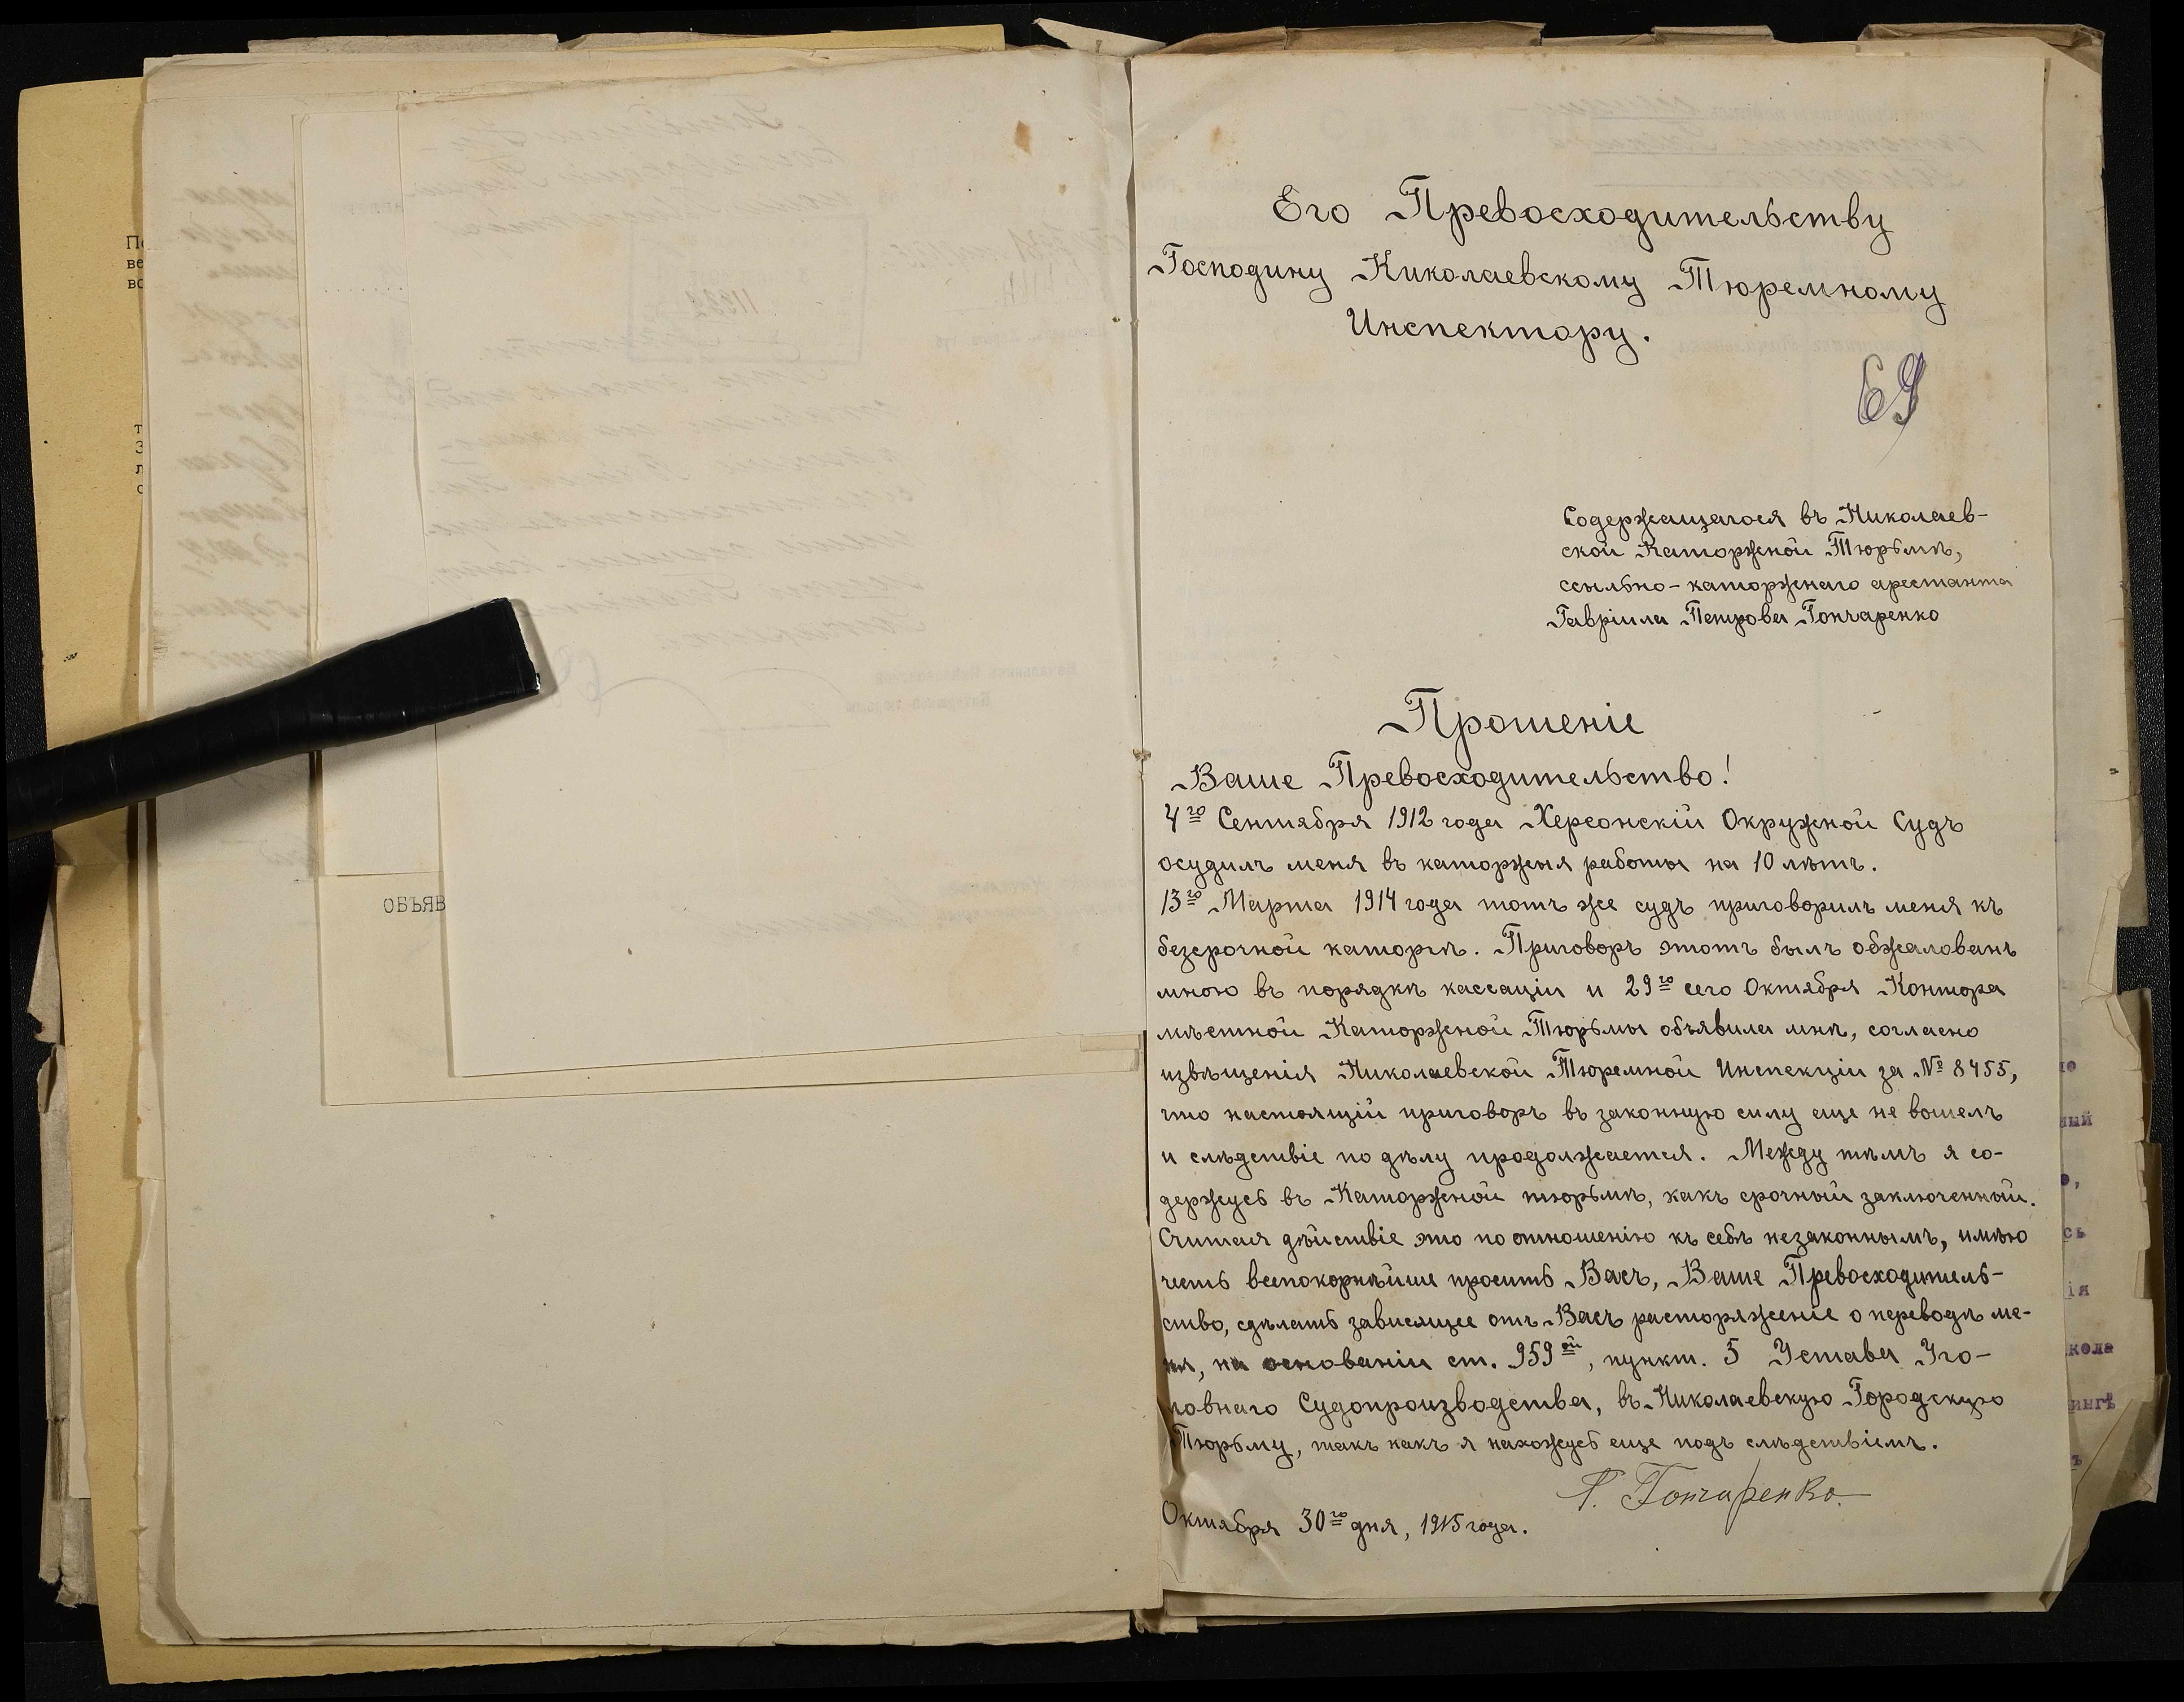 Его Превосходительству
Господину Николаевскому Тюремному
Инспектору.
69
Содержащагося въ Николаев-
ской Каторжной Тюрьмѣ,
ссыльно-каторжнаго арестанта
Гавріила Петрова Гончаренко
Прошеніе
Ваше Превосходительство!
4го Сентября 1912 года Херсонскій Окружной Судъ
осудилъ меня въ каторжныя работы на 10 лѣтъ.
13го Марта 1914 года тотъ же судъ приговорилъ меня къ
безсрочной каторгѣ. Приговоръ этотъ былъ обжалованъ
мною въ порядкѣ кассаціи и 29го сего Октября Контора
мѣстной Каторжной Тюрьмы объявила мнѣ, согласно
извѣщенія Николаевской Тюремной Инспекціи за № 8455,
что настоящій приговоръ въ законную силу еще не вошелъ
и слѣдствіе по дѣлу продолжается. Между тѣмъ я со-
держусь въ Каторжной тюрьмѣ, какъ срочный заключенный.
Считая дѣйствіе это по отношенію къ себѣ незаконнымъ, имѣю
честь всепокорнѣйше просить Васъ, Ваше Превосходитель-
ство, сдѣлать зависящее отъ Васъ расторяженіе о переводѣ ме-
ня, на основаніи ст. 959ой, пункт. 5 Устава Уго-
ловнаго Судопроизводства, въ Николаевскую Городскую
Тюрьму, такъ какъ я нахожусь еще подъ слѣдствіемъ.
Г. Гончаренко.
Октября 30го дня, 1915 года.
ОБЪЯВ